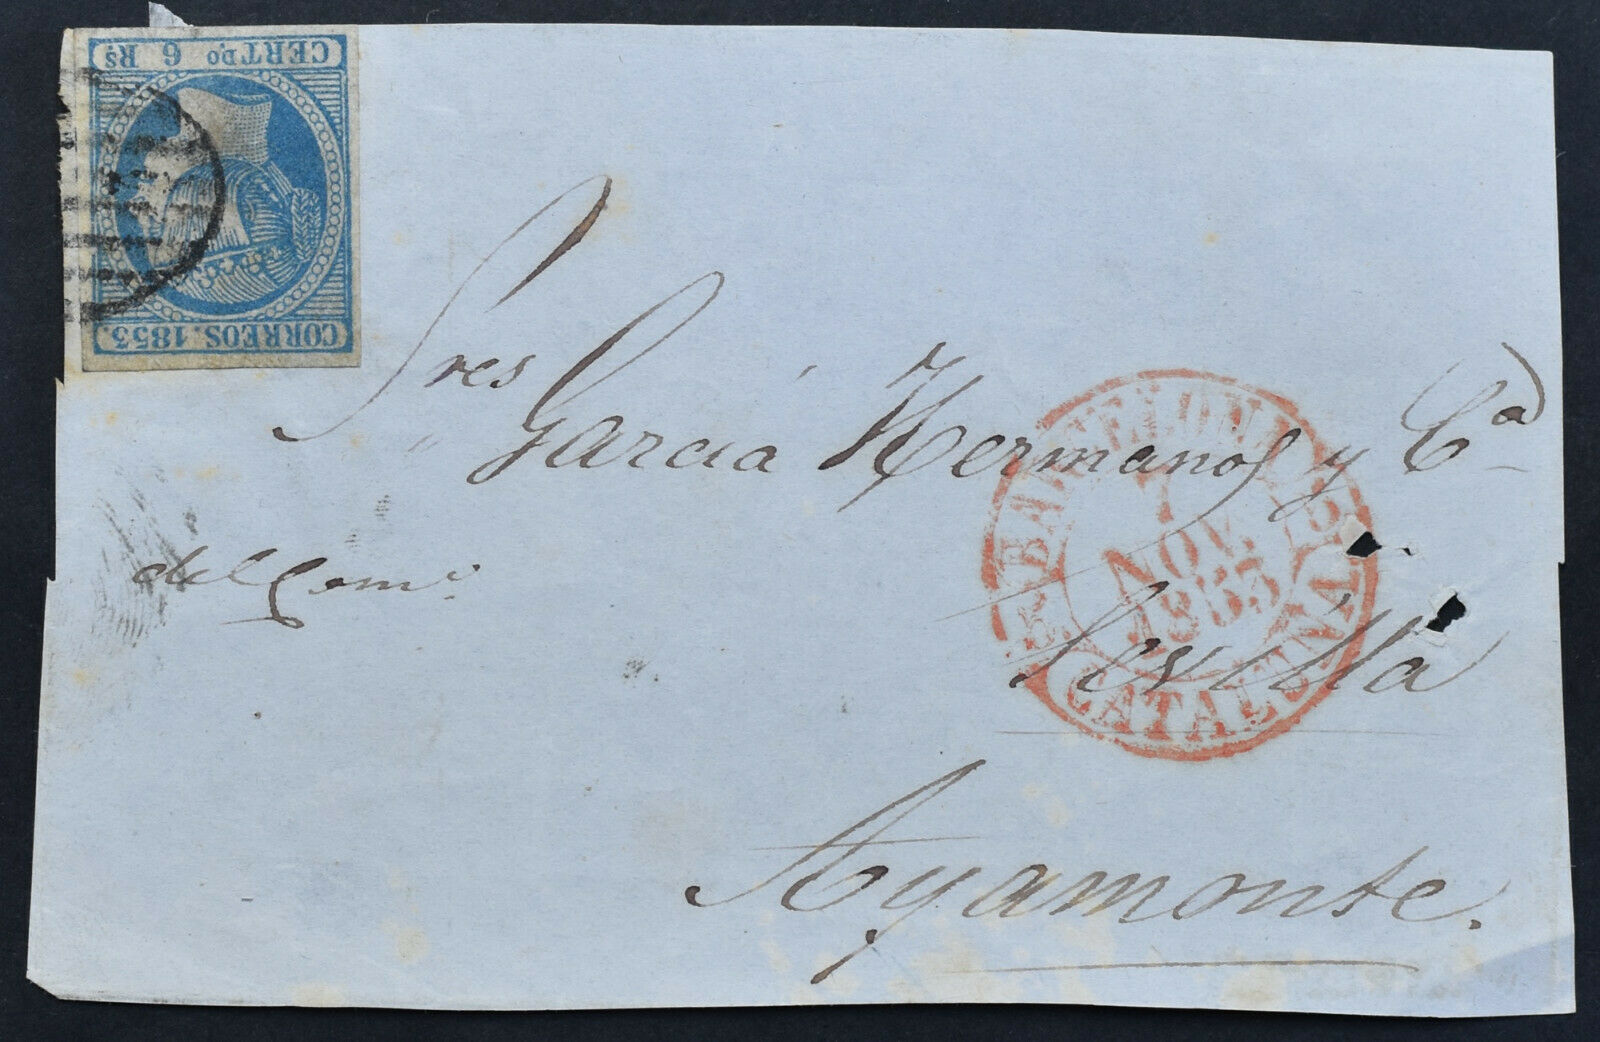 CERTDO. 6 Rs.
CORREOS. 1853.
Sres Garcia Hermanos y Ca
del Como.
BARCELONA
7
NOV.
1853
CATALUÑA
Sevilla
Ayamonte.